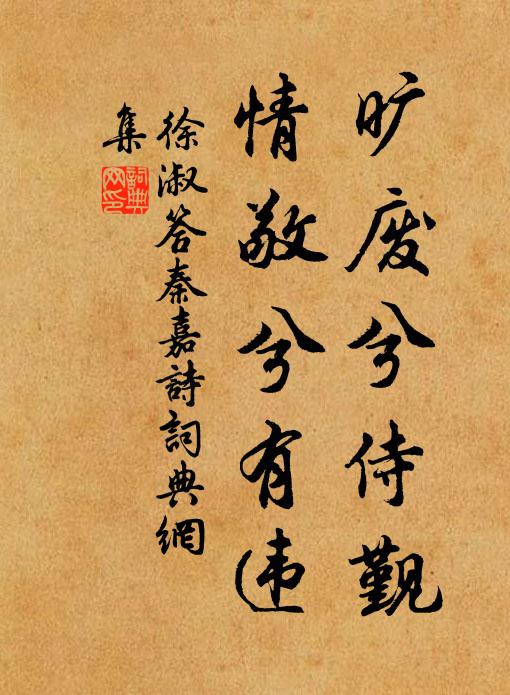 旷废兮侍觐
情敬兮有违
徐淑答秦嘉詩詞典網
集
詞典
网印